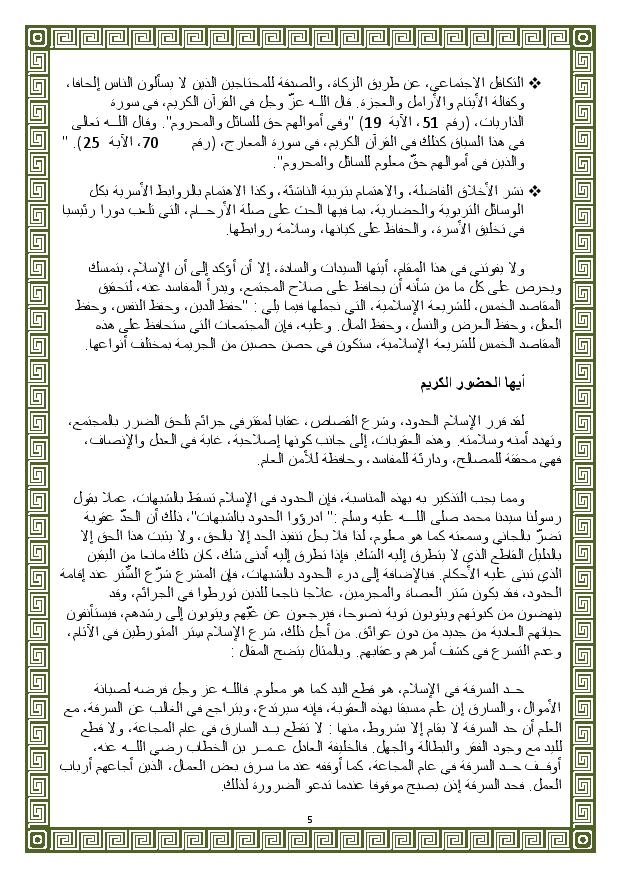 ❖ التكافل الاجتماعي، عن طريق الزكاة، والصدقة للمحتاجين الذين لا يسألون الناس إلحافا،
وكفالة الأيتام والأرامل والعجزة. قال اللـه عزّ وجل في القرآن الكريم، في سورة
الذاريات، (رقم 51، الآية 19) "وفي أموالهم حق للسائل والمحروم". وقال اللـه تعالى
في هذا السياق كذلك في القرآن الكريم، في سورة المعارج، (رقم 70، الآية 25). "
والذين في أموالهم حقّ معلوم للسائل والمحروم".
❖ نشر الأخلاق الفاضلة، والاهتمام بتربية الناشئة، وكذا الاهتمام بالروابط الأسرية بكل
الوسائل التربوية والحضارية، بما فيها الحث على صلة الأرحـام، التي تلعب دورا رئيسيا
في تخليق الأسرة، والحفاظ على كيانها، وسلامة روابطها.
ولا يفوتني في هذا المقام، أيتها السيدات والسادة، إلا أن أؤكد إلى أن الإسلام، يتمسك
ويحرص على كل ما من شأنه أن يحافظ على صلاح المجتمع، ويدرأ المفاسد عنه، لتحقيق
المقاصد الخمس، للشريعة الإسلامية، التي نجملها فيما يلي : "حفظ الدين، وحفظ النفس، وحفظ
العقل، وحفظ العرض والنسل، وحفظ المال. وعليه، فإن المجتمعات التي ستحافظ على هذه
المقاصد الخمس للشريعة الإسلامية، ستكون في حصن حصين من الجريمة بمختلف أنواعها.
أيها الحضور الكريم
لقد قرر الإسلام الحدود، وشرع القصاص، عقابا لمقترفي جرائم تلحق الضرر بالمجتمع،
وتهدد أمنه وسلامته. وهذه العقوبات، إلى جانب كونها إصلاحية، غاية في العدل والإنصاف،
فهي محققة للمصالح، ودارئة للمفاسد، وحافظة للأمن العام.
ومما يجب التذكير به بهذه المناسبة، فإن الحدود في الإسلام تسقط بالشبهات، عملا بقول
رسولنا سيدنا محمد صلى اللـه عليه وسلم :" ادرؤوا الحدود بالشبهات"، ذلك أن الحدّ عقوبة
تضرّ بالجاني وسمعته كما هو معلوم، لذا فلا يحل تنفيذ الحد إلا بالحق، ولا يثبت هذا الحق إلا
بالدليل القاطع الذي لا يتطرق إليه الشك. فإذا تطرق إليه أدنى شك، كان ذلك مانعا من اليقين
الذي تبنى عليه الأحكام. فبالإضافة إلى درء الحدود بالشبهات، فإن المشرع شرّع السّتر عند إقامة
الحدود، فقد يكون ستر العصاة والمجرمين، علاجا ناجعا للذين تورطوا في الجرائم، وقد
ينهضون من كبوتهم ويتوبون توبة نصوحا، فيرجعون عن غيّهم ويتوبون إلى رشدهم، فيستأنفون
حياتهم العادية من جديد من دون عوائق. من أجل ذلك، شرع الإسلام ستر المتورطين في الآثام،
وعدم التسرع في كشف أمرهم وعقابهم. وبالمثال يتضح المقال :
حـد السرقة في الإسلام، هو قطع اليد كما هو معلوم. فاللـه عز وجل فرضه لصيانة
الأموال، والسارق إن علم مسبقا بهذه العقوبة، فإنه سيرتدع، ويتراجع في الغالب عن السرقة، مع
العلم أن حد السرقة لا يقام إلا بشروط، منها : لا تقطع يـد السارق في عام المجاعة، ولا قطع
لليد مع وجود الفقر والبطالة والجهل. فالخليفة العادل عمـر بن الخطاب رضي اللـه عنه،
أوقـف حـد السرقة في عام المجاعة، كما أوقفه عند ما سرق بعض العمال، الذين أجاعهم أرباب
العمل. فحد السرقة إذن يصبح موقوفا عندما تدعو الضرورة لذلك.
5